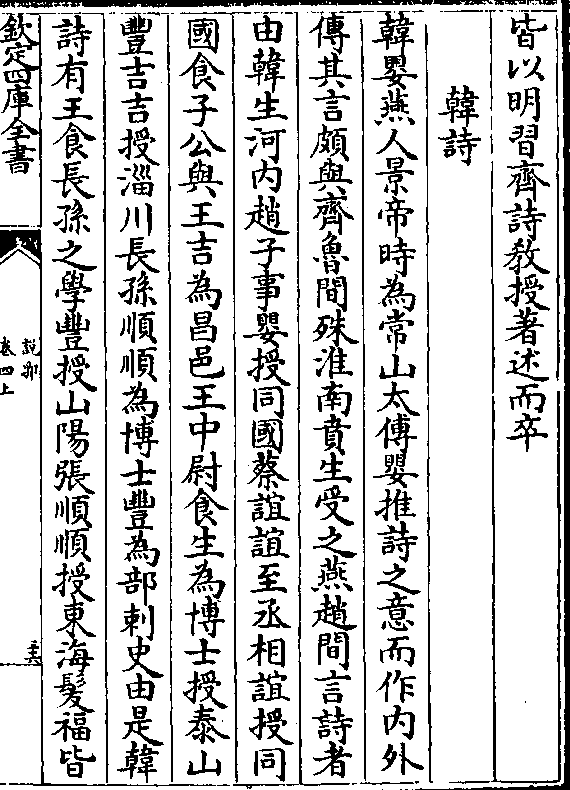 皆以明習齊詩教授著述而卒
韓詩
韓嬰燕人景帝時為常山太傅嬰推詩之意而作內外
傳其言頗與齊魯間殊淮南賁生受之燕趙間言詩者
由韓生河內趙子事嬰授同國蔡誼誼至丞相誼授同
國食子公與王吉為昌邑王中尉食生為博士授泰山
豐吉吉授淄川長孫順順為博士豐為部刺史由是韓
詩有王食長孫之學豐授山陽張順順授東海髮福皆
欽定四庫全書
說郛
卷四上